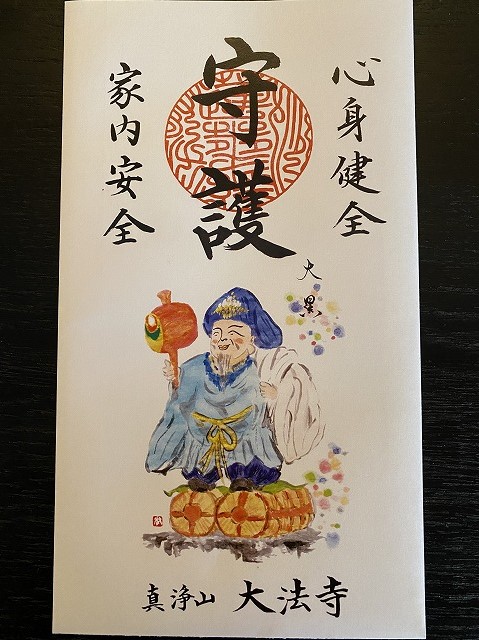 心身健全
守護
家内安全
大黒
真浄山 大法寺